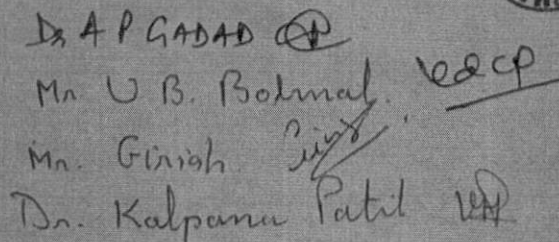 Dr A P GADAD
Mr U B. Bolmal.
Mr. Girish
Dr. Kalpana Patil